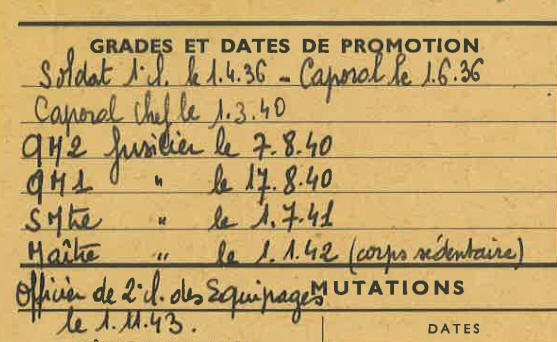 GRADES ET DATES DE PROMOTION
Soldat 1°cl. le 1.4.36 - Caporal le 1.6.36
Caporal chef le 1.3.40
QM2 fusilier le 7.8.40
QM1 " le 17.8.40
SMtre " le 1.7.41
Maître " le 1.1.42 (corps sédentaire)
Officier de 2°cl. des Equipages
MUTATIONS
le 1.11.43.
DATES